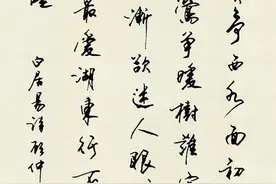 亭西水面初
鶯争暖樹誰家
漸欲迷人眼
最愛湖東行不
白居易詩顧仲